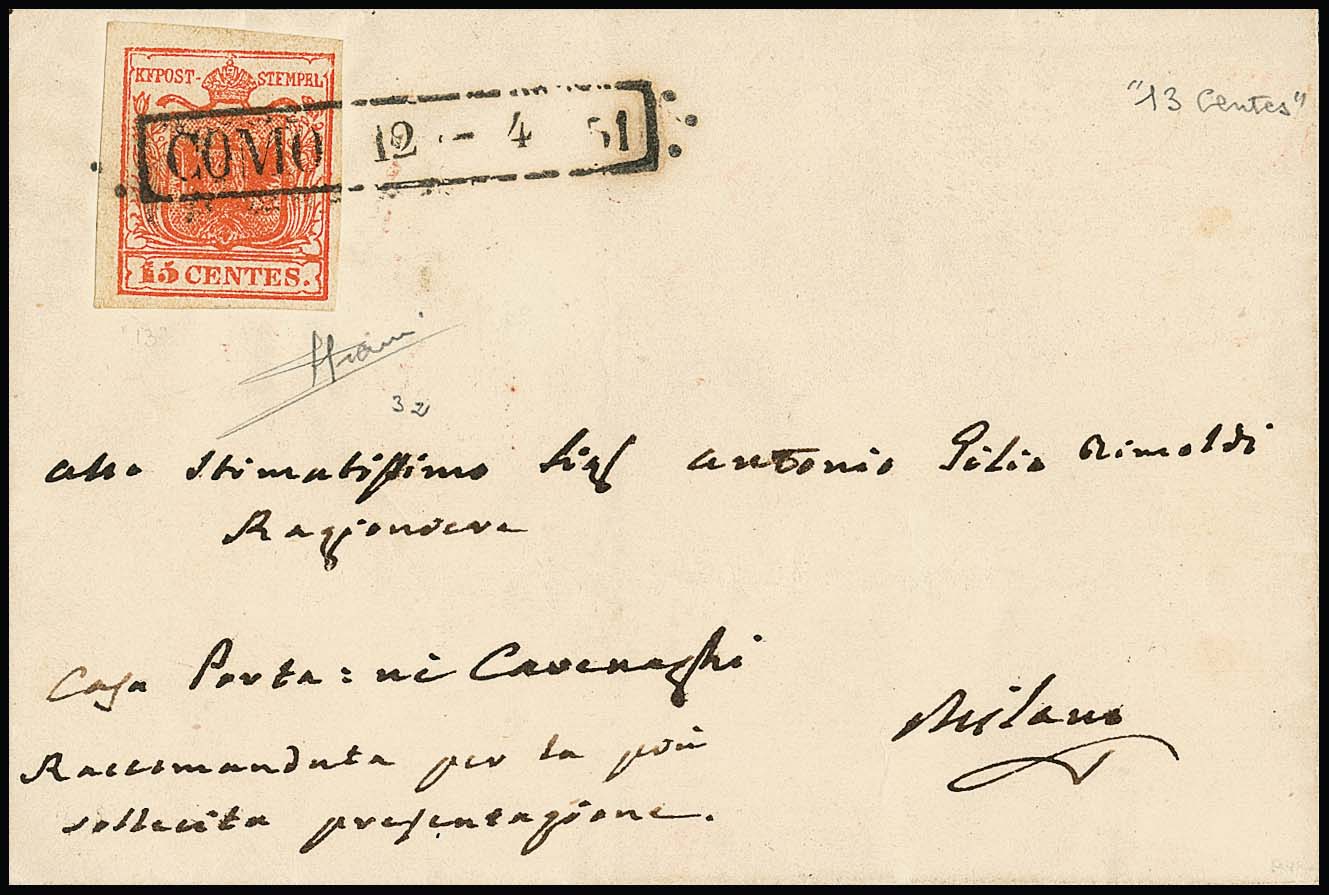 KK POST-STEMPEL
COMO 12 - 4 51
15 CENTES.
"13 Centes"
"13"
32
allo Stimatissimo Sigr Antonio Gilio Rimoldi
Raggioniere
Casa Porta: ni Cavenaghi
Milano
Raccomandata per la più
sollecita presentazione.